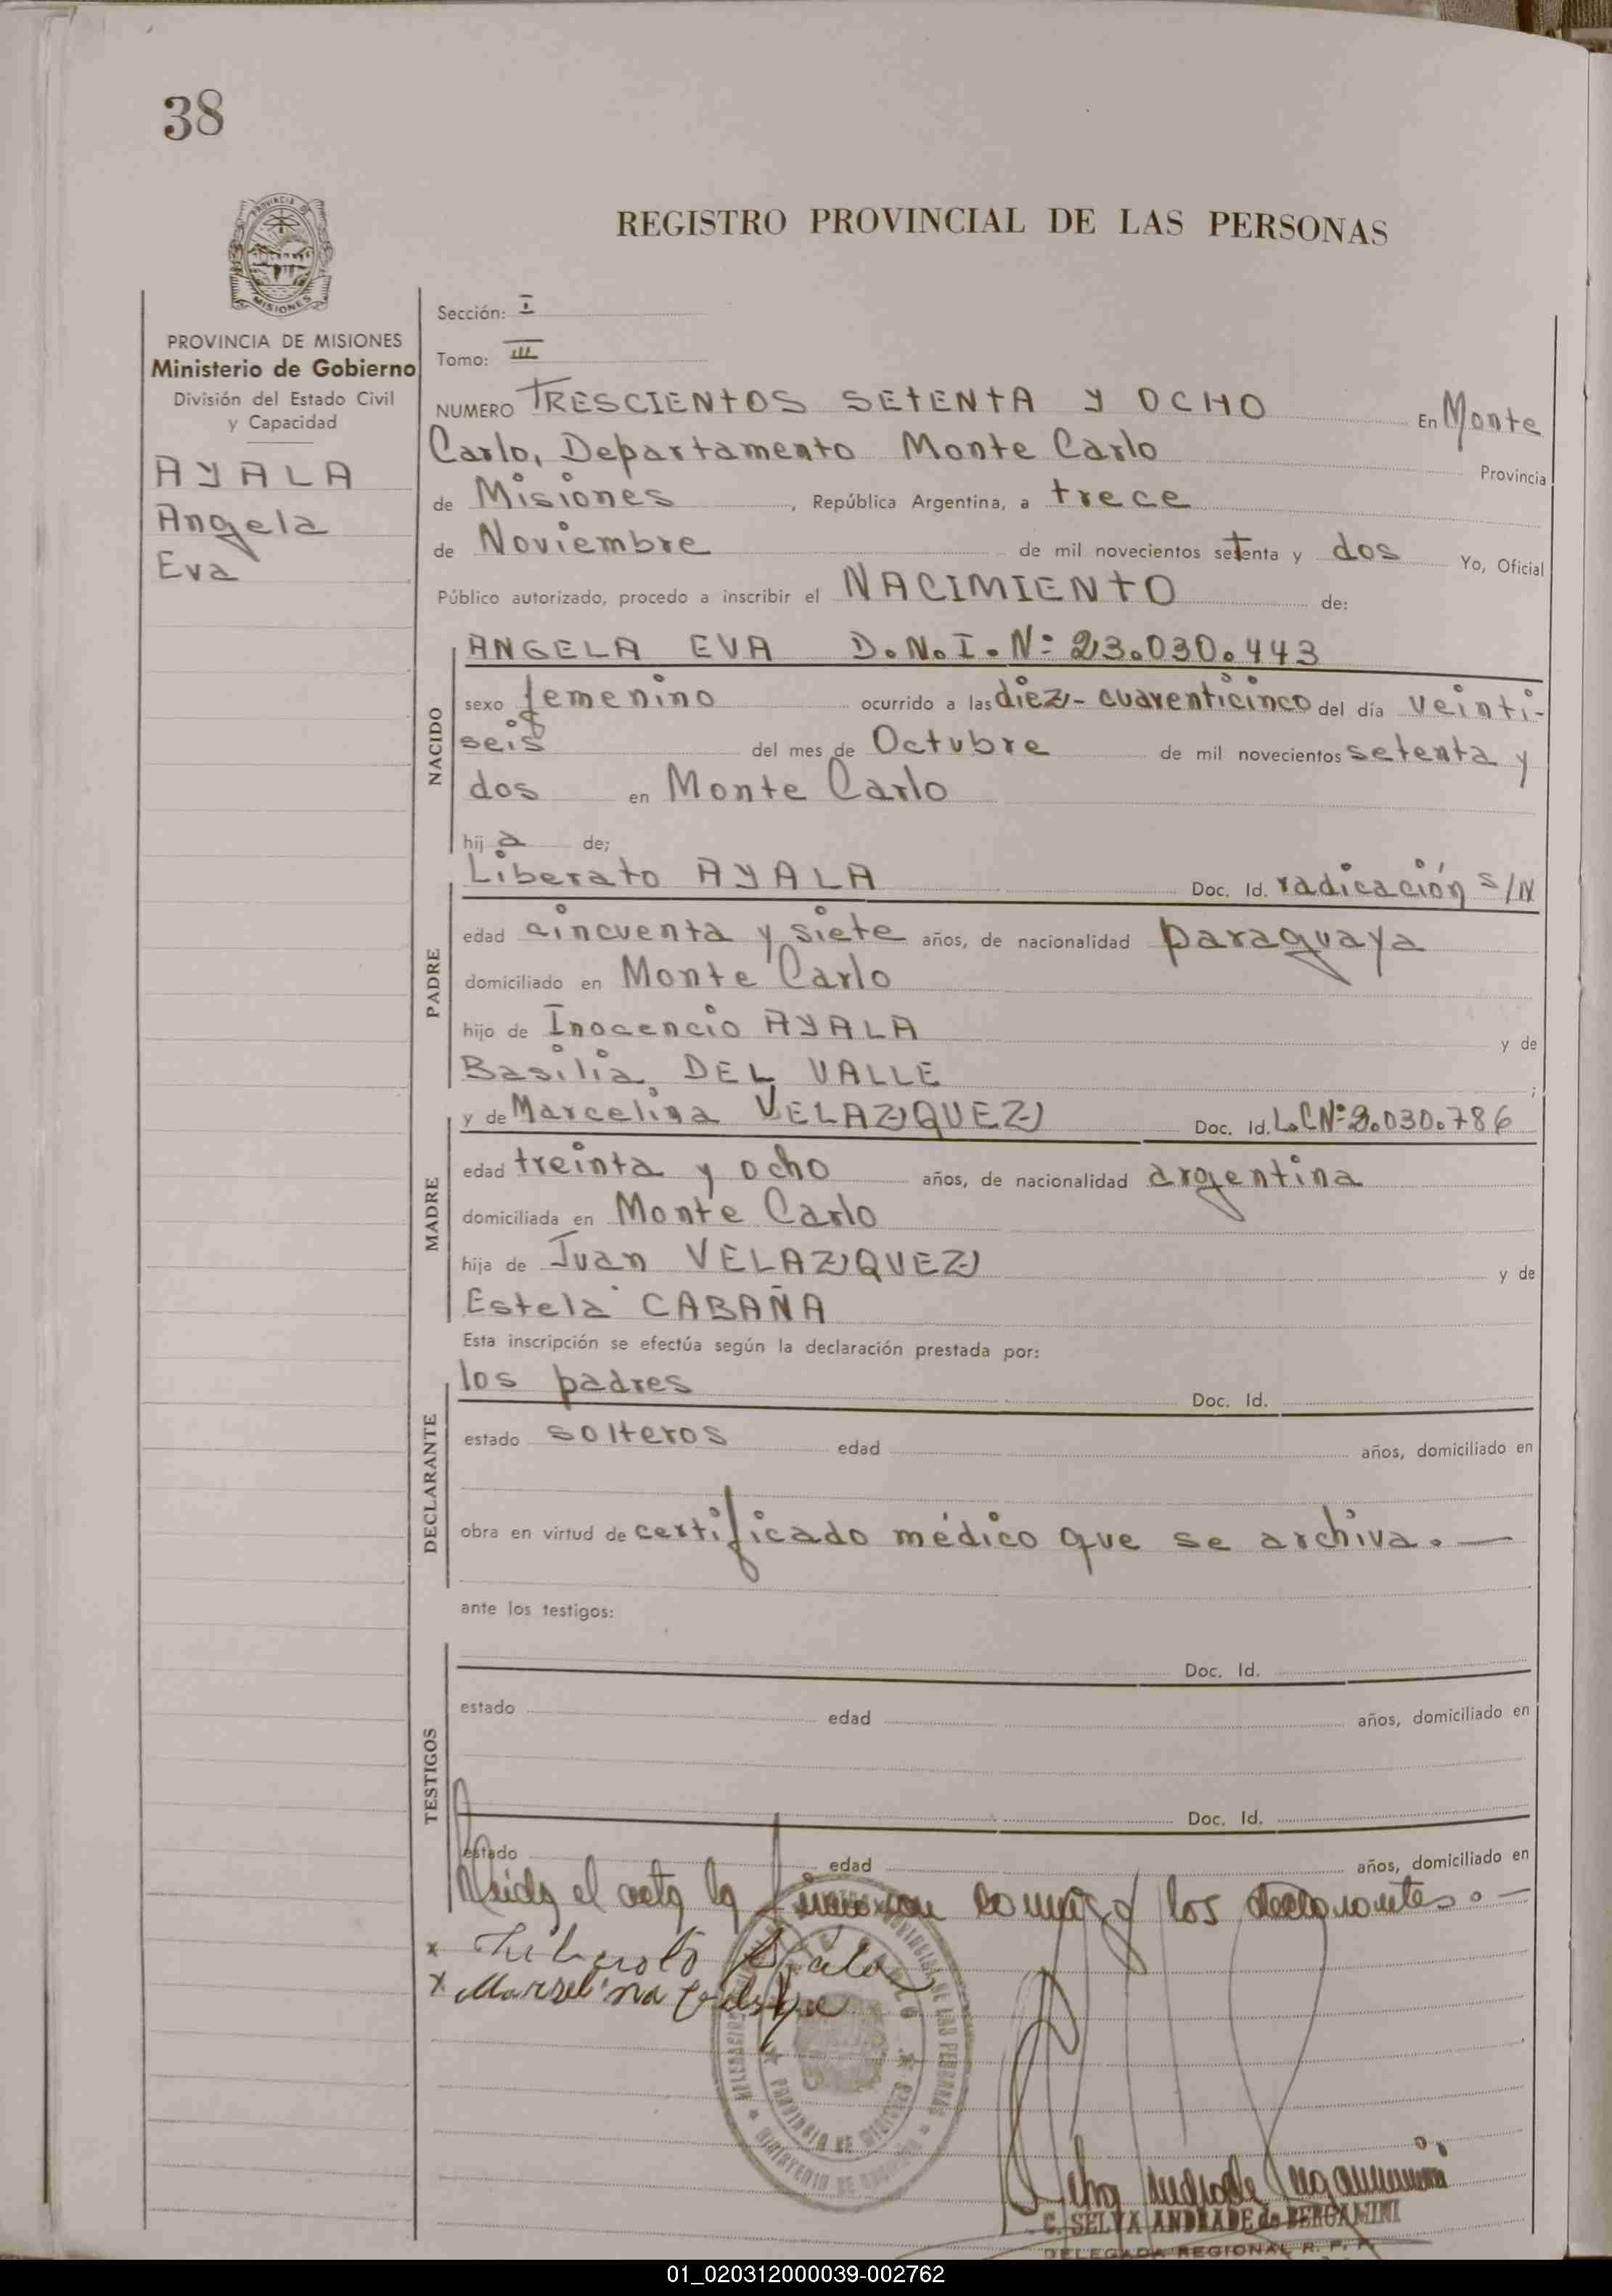 38
PROVINCIA DE MISIONES
Ministerio de Gobierno
División del Estado Civil
y Capacidad
AYALA
Angela
Eva
REGISTRO PROVINCIAL DE LAS PERSONAS
Sección: I
Tomo: III
NUMERO TRESCIENTOS SETENTA Y OCHO En Monte
Carlo, Departamento Monte Carlo Provincia
de Misiones, República Argentina, a trece
de Noviembre de mil novecientos setenta y dos Yo, Oficial
Público autorizado, procedo a inscribir el NACIMIENTO de:
NACIDO
ANGELA EVA D.N.I.Nº 23.030.443
sexo femenino ocurrido a las diez - cuarenticinco del día veinti-
seis del mes de Octubre de mil novecientos setenta y
dos en Monte Carlo
hij a de;
PADRE
Liberato AYALA Doc. Id. radicación S/N
edad cincuenta y siete años, de nacionalidad paraguaya
domiciliado en Monte Carlo
hijo de Inocencio AYALA y de
Basilia DEL VALLE ;
MADRE
y de Marcelina VELAZQUEZ Doc. Id. L.C Nº 2.030.786
edad treinta y ocho años, de nacionalidad argentina
domiciliada en Monte Carlo
hija de Juan VELAZQUEZ y de
Estela CABAÑA
Esta inscripción se efectúa según la declaración prestada por:
DECLARANTE
los padres Doc. Id.
estado solteros edad años, domiciliado en
obra en virtud de certificado médico que se archiva. —
ante los testigos:
TESTIGOS
Doc. Id.
estado edad años, domiciliado en
Doc. Id.
estado edad años, domiciliado en
Leida el acta la firmaron conmigo los declarantes. —
x Liberato Ayala
x Marselina
PROVINCIA DE MISIONES
C. SELVA ANDRADE de BERGAMINI
DELEGADA REGIONAL R. P. P.
01_020312000039-002762